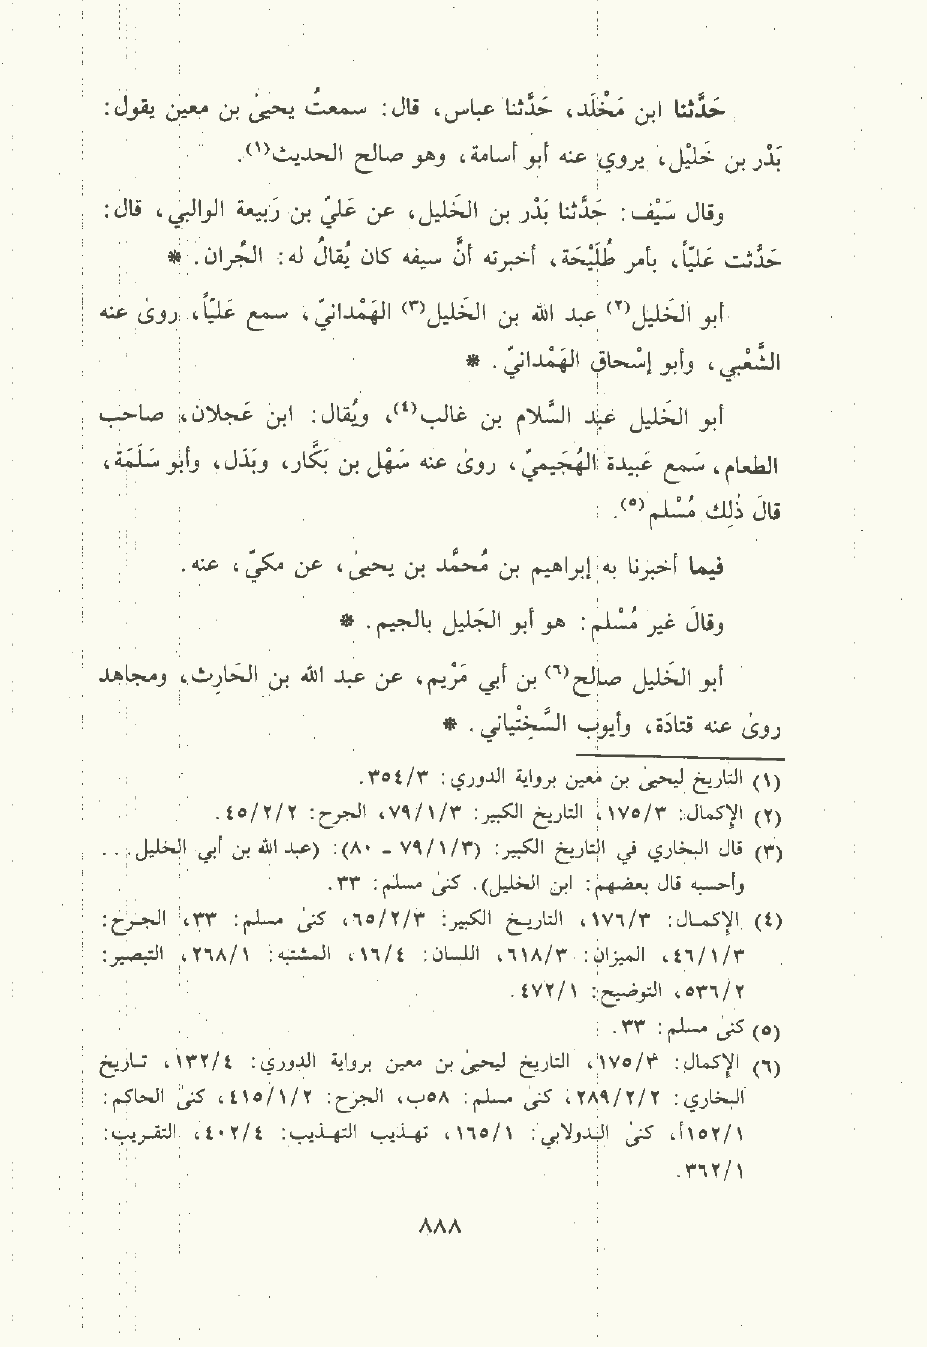 حَدَّثنا ابن مَخْلَد، حَدَّثنا عباس، قال: سمعتُ يحيىٰ بن معين يقول:
بَدْر بن خَليْل، يروي عنه أبو أسامة، وهو صالح الحديث(١).
وقال سَيْف: حَدَّثنا بَدْر بن الخَليل، عن عَليّ بن رَبيعة الوالبي، قال:
حَدَّثت عَليّاً، بأمر طُلَيْحَة، أخبرته أنَّ سيفه كان يُقالُ له: الجُراز. *
أبو الخَليل(٢) عبد الله بن الخَليل(٣) الهَمْدانيّ، سمع عَليّاً، روىٰ عنه
الشَّعْبي، وأبو إسْحاق الهَمْدانيّ. *
أبو الخَليل عبد السَّلام بن غالب(٤)، ويُقال: ابن عَجلان، صاحب
الطعام، سَمع عَبيدة الهُجَيميّ، روىٰ عنه سَهْل بن بَكَّار، وبَدَل، وأبو سَلَمَة،
قالَ ذٰلِك مُسْلم(٥).
فيما أخبرنا به إبراهيم بن مُحمَّد بن يحيىٰ، عن مكيّ، عنه.
وقالَ غير مُسْلم: هو أبو الجَليل بالجيم. *
أبو الخَليل صالح(٦) بن أبي مَرْيم، عن عبد الله بن الحَارِث، ومجاهد
روىٰ عنه قتادَة، وأيوب السَّخِتْياني. *
(١) التاريخ ليحيىٰ بن معين برواية الدوري: ٣٥٤/٣.
(٢) الإكمال: ١٧٥/٣، التاريخ الكبير: ٧٩/١/٣، الجرح: ٤٥/٢/٢.
(٣) قال البخاري في التاريخ الكبير: (٧٩/١/٣ ـ ٨٠): (عبد الله بن أبي الخليل...
وأحسبه قال بعضهم: ابن الخليل). كنىٰ مسلم: ٣٣.
(٤) الإكمال: ١٧٦/٣، التاريخ الكبير: ٦٥/٢/٣، كنىٰ مسلم: ٣٣، الجرح:
٤٦/١/٣، الميزان: ٦١٨/٣، اللسان: ١٦/٤، المشتبه: ٢٦٨/١، التبصير:
٥٣٦/٢، التوضيح: ٤٧٢/١.
(٥) كنىٰ مسلم: ٣٣.
(٦) الإكمال: ١٧٥/٣، التاريخ ليحيىٰ بن معين برواية الدوري: ١٣٢/٤، تاريخ
البخاري: ٢٨٩/٢/٢، كنىٰ مسلم: ٥٨ب، الجرح: ٤١٥/١/٢، كنىٰ الحاكم:
١٥٢/١أ، كنىٰ الدولابي: ١٦٥/١، تهذيب التهذيب: ٤٠٢/٤، التقريب:
٣٦٢/١.
٨٨٨